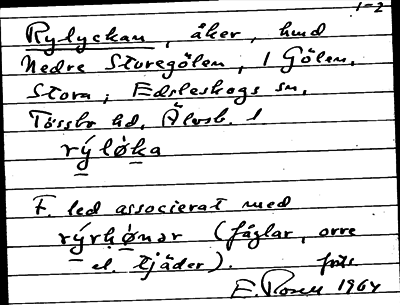 1-2
Rylyckan, åker, hmd
Nedre Sturegölen, 1 Gölen,
Stora, Edsleskogs sn,
Tössbo hd, Älvsb. l
rýløka
F. led associerat med
rýrhønər (fåglar, orre
el. tjäder).
E. Rosell 1964